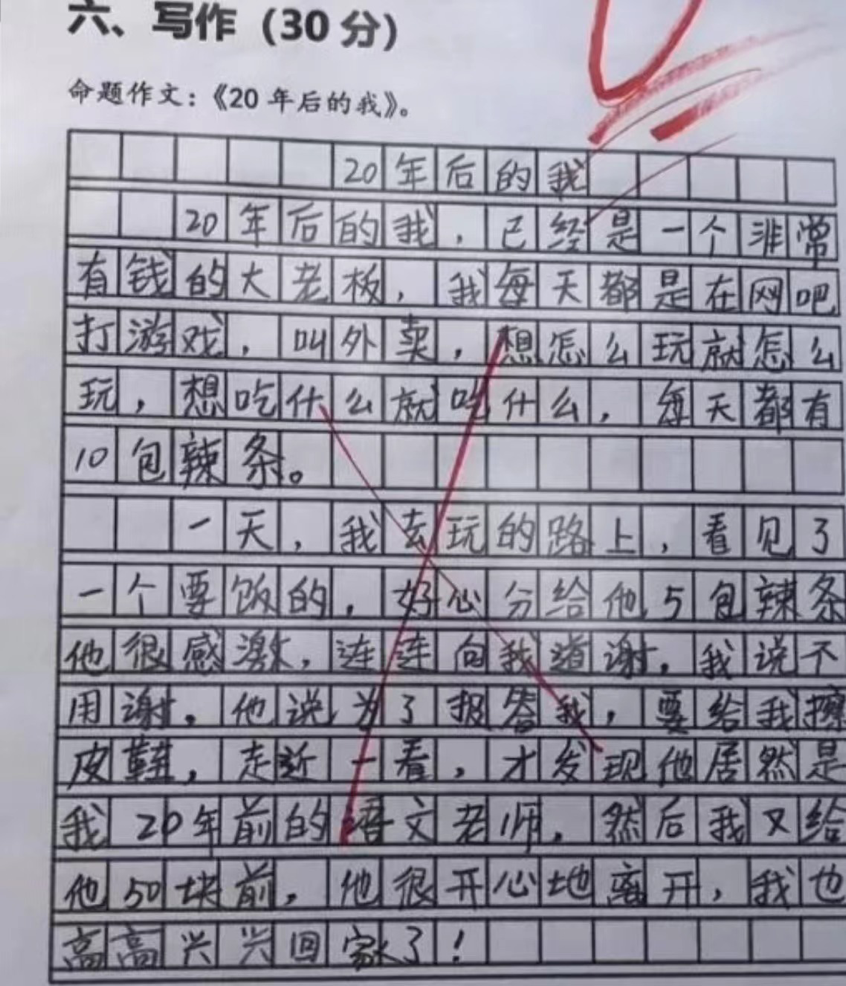 六、写作（30 分）
命题作文：《20 年后的我》。
20年后的我
20年后的我，已经是一个非常
有钱的大老板，我每天都是在网吧
打游戏，叫外卖，想怎么玩就怎么
玩，想吃什么就吃什么，每天都有
10包辣条。
一天，我去玩的路上，看见了
一个要饭的，好心分给他5包辣条
他很感激，连连向我道谢，我说不
用谢，他说为了报答我，要给我擦
皮鞋，走近一看，才发现他居然是
我20年前的语文老师，然后我又给
他50块前，他很开心地离开，我也
高高兴兴回家了！